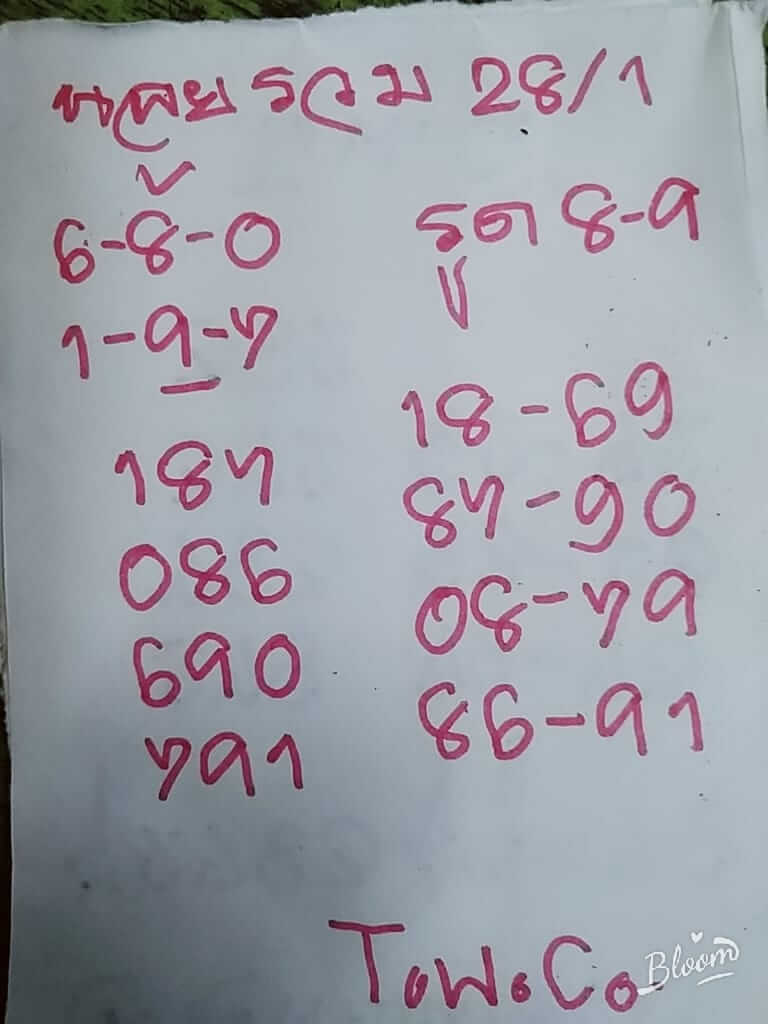 รวม 28/1
6-8-0
1-9-7
รูด 8-9
187
086
690
791
18-69
87-90
08-79
86-91
Bloom